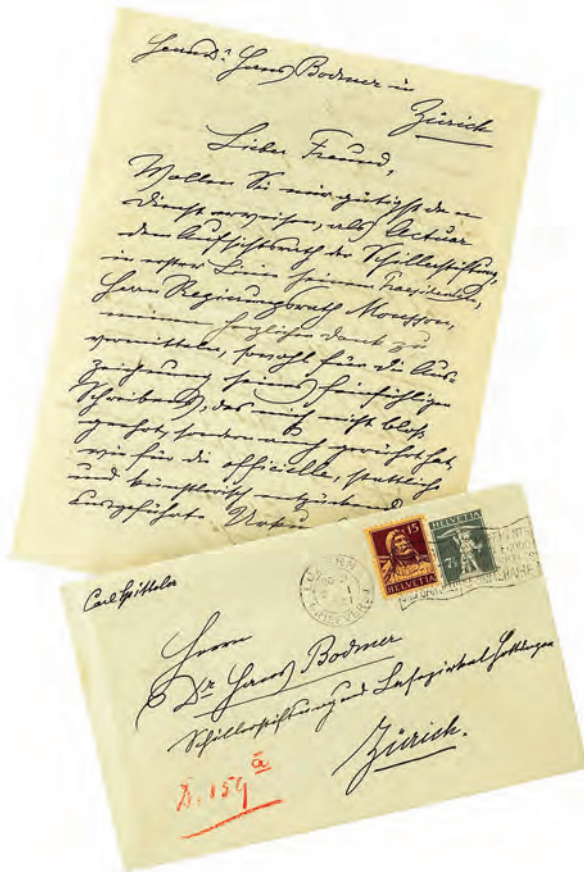 Herrn Dr Hans Bodmer in
Zürich
Lieber Freund,
Wollen Sie mir gütigst den
Dienst erweisen, als Actuar
dem Aufsichtsrath der Schillerstiftung,
in erster Linie seinem Praesidenten,
Herrn Regierungsrath Mousson,
meinen herzlichen Dank zu
vermitteln, sowohl für die Aus-
zeichnung seines feinfühligen
Schreibens, das mich nicht bloß
geehrt, sondern auch gerührt hat,
wie für die officielle, stattliche
und künstlerisch entzückend
ausgeführte
Carl Spitteler
LUZERN
15
HELVETIA
HELVETIA
7½
Herrn
Dr Hans Bodmer
Schillerstiftung und Lesezirkel Hottingen
Zürich.